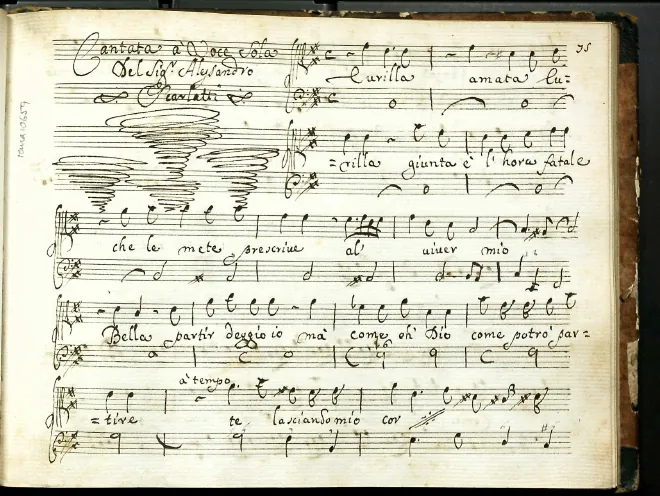 Cantata à Voce Sola
Del Sigr. Alessandro
Scarlatti
35
Lurilla amata Lu=
=rilla giunta è l'hora fatale
che le mete prescrive al' viver mio
Bella partir deggio io mà come oh Dio come potrò par=
à tempo
=tire te lasciando mio cor